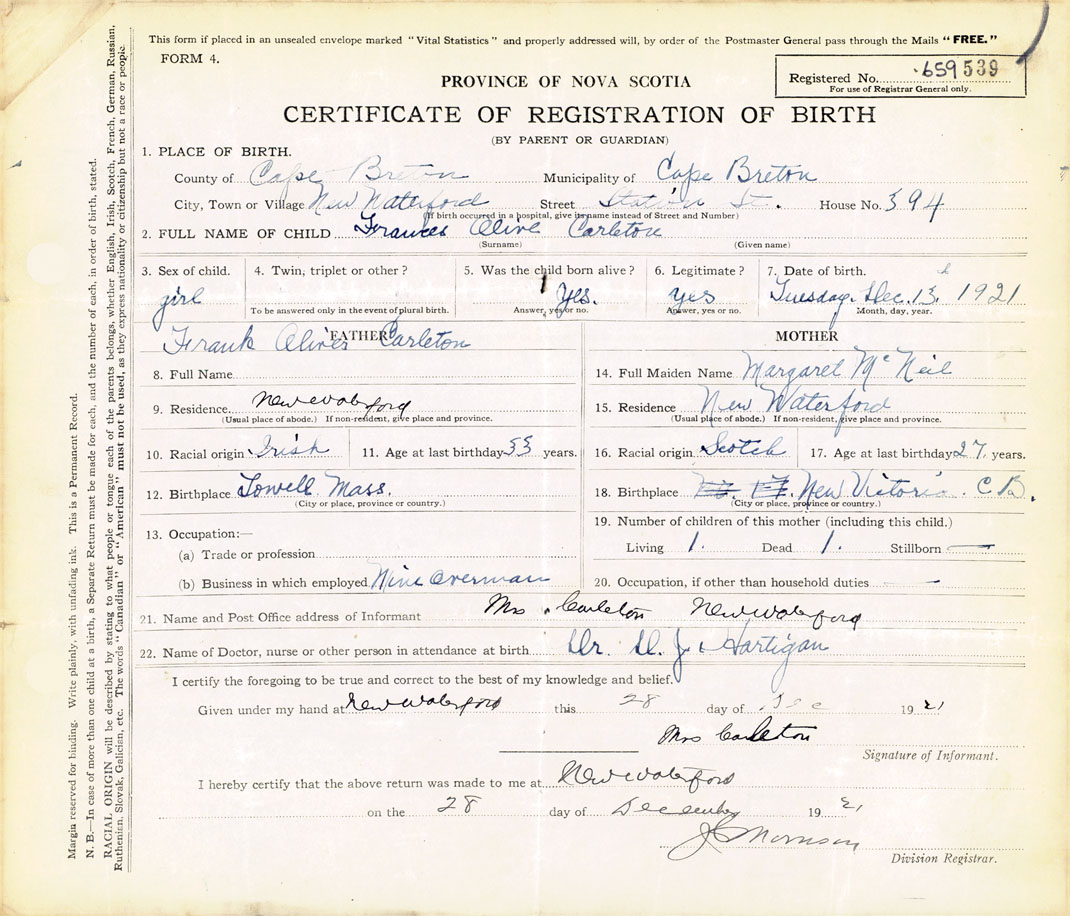 This form if placed in an unsealed envelope marked "Vital Statistics" and properly addressed will, by order of the Postmaster General pass through the Mails "FREE."
FORM 4.
Registered No. 659539
For use of Registrar General only.
PROVINCE OF NOVA SCOTIA
CERTIFICATE OF REGISTRATION OF BIRTH
(BY PARENT OR GUARDIAN)
1. PLACE OF BIRTH.
County of Cape Breton Municipality of Cape Breton
City, Town or Village New Waterford Street Station St. House No. 394
(If birth occurred in a hospital, give its name instead of Street and Number)
2. FULL NAME OF CHILD Frances Olive Carleton
(Surname) (Given name)
3. Sex of child. 4. Twin, triplet or other? 5. Was the child born alive? 6. Legitimate? 7. Date of birth.
girl Yes. yes Tuesday. Dec. 13th 1921
To be answered only in the event of plural birth. Answer, yes or no. Answer, yes or no. Month, day, year.
FATHER MOTHER
Frank Oliver Carleton
8. Full Name 14. Full Maiden Name Margaret McNeil
9. Residence New Waterford 15. Residence New Waterford
(Usual place of abode.) If non-resident, give place and province. (Usual place of abode.) If non-resident, give place and province.
10. Racial origin Irish 11. Age at last birthday 33 years. 16. Racial origin Scotch 17. Age at last birthday 27. years.
12. Birthplace Lowell Mass. 18. Birthplace New Victoria. C B.
(City or place, province or country.) (City or place, province or country.)
13. Occupation:— 19. Number of children of this mother (including this child.)
(a) Trade or profession Living 1. Dead 1. Stillborn —
(b) Business in which employed Mine Overman 20. Occupation, if other than household duties —
21. Name and Post Office address of Informant Mrs. Carleton New Waterford
22. Name of Doctor, nurse or other person in attendance at birth Dr. D. J. Hartigan
I certify the foregoing to be true and correct to the best of my knowledge and belief.
Given under my hand at New Waterford this 28 day of Dec 1921
Mrs Carleton
Signature of Informant.
I hereby certify that the above return was made to me at New Waterford
on the 28 day of December 1921
J Morrison
Division Registrar.
Margin reserved for binding. Write plainly, with unfading ink. This is a Permanent Record.
N. B.—In case of more than one child at a birth, a Separate Return must be made for each, and the number of each, in order of birth, stated.
RACIAL ORIGIN will be described by stating to what people or tongue each of the parents belongs, whether English, Irish, Scotch, French, German, Russian,
Ruthenian, Slovak, Galician, etc. The words "Canadian" or "American" must not be used, as they express nationality or citizenship but not a race or people.